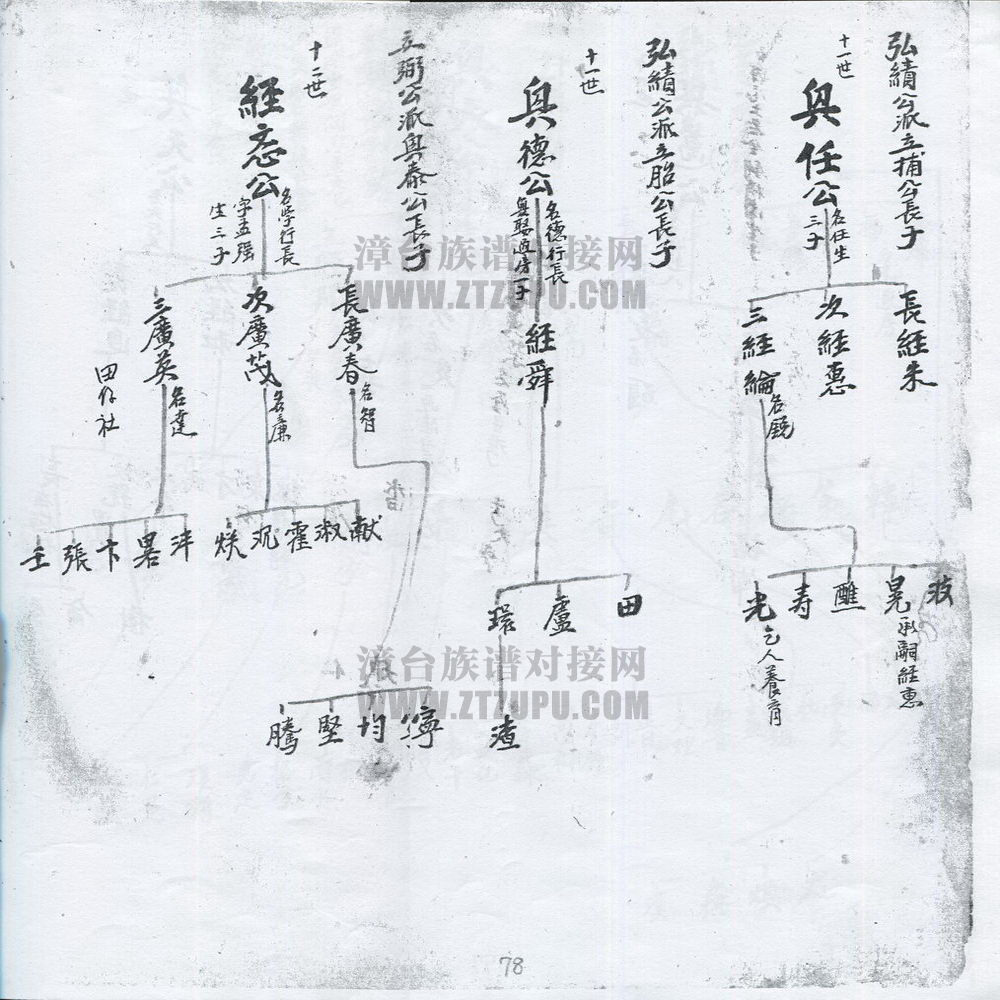 弘績公派立捕公長子
十一世
與任公
名任生
三子
長経朱
次経惠
三経綸
名
晃
承嗣経惠
醮
寿
光
乞人養育
弘績公派立胎公長子
十一世
與德公
名德行長
経舜
田
盧
環
渣
立弼公派與泰公長子
十二世
経志公
名学行長
字孟强
生三子
長廣春
名智
次廣茂
名廉
三廣英
名達
田仔社
献
淑
霍
況
泮
卞
張
壬
均
堅
騰
漳台族谱对接网
WWW.ZTZUPU.COM
漳台族谱对接网
WWW.ZTZUPU.COM
78